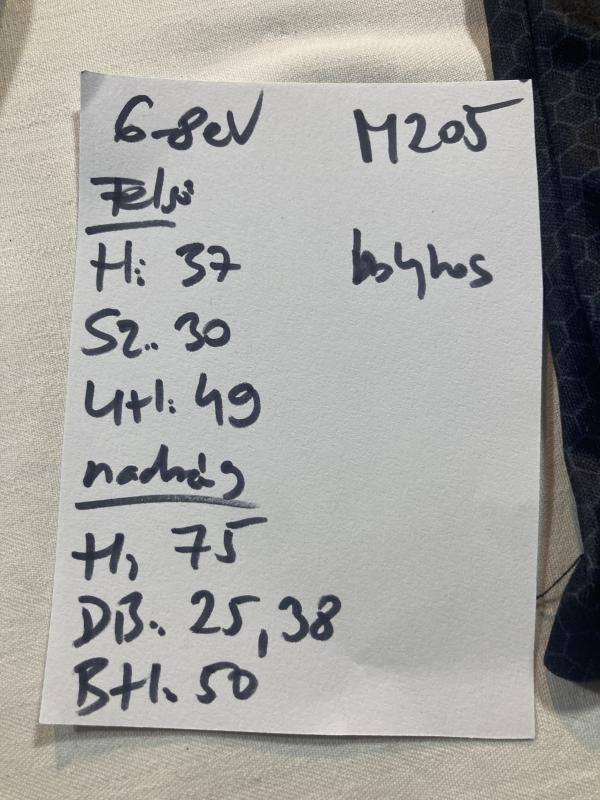 6-8 év
M205
Felső
H: 37
bolyhos
Sz.: 30
Ujh: 49
nadrág
H: 75
DB: 25,38
Bth: 50